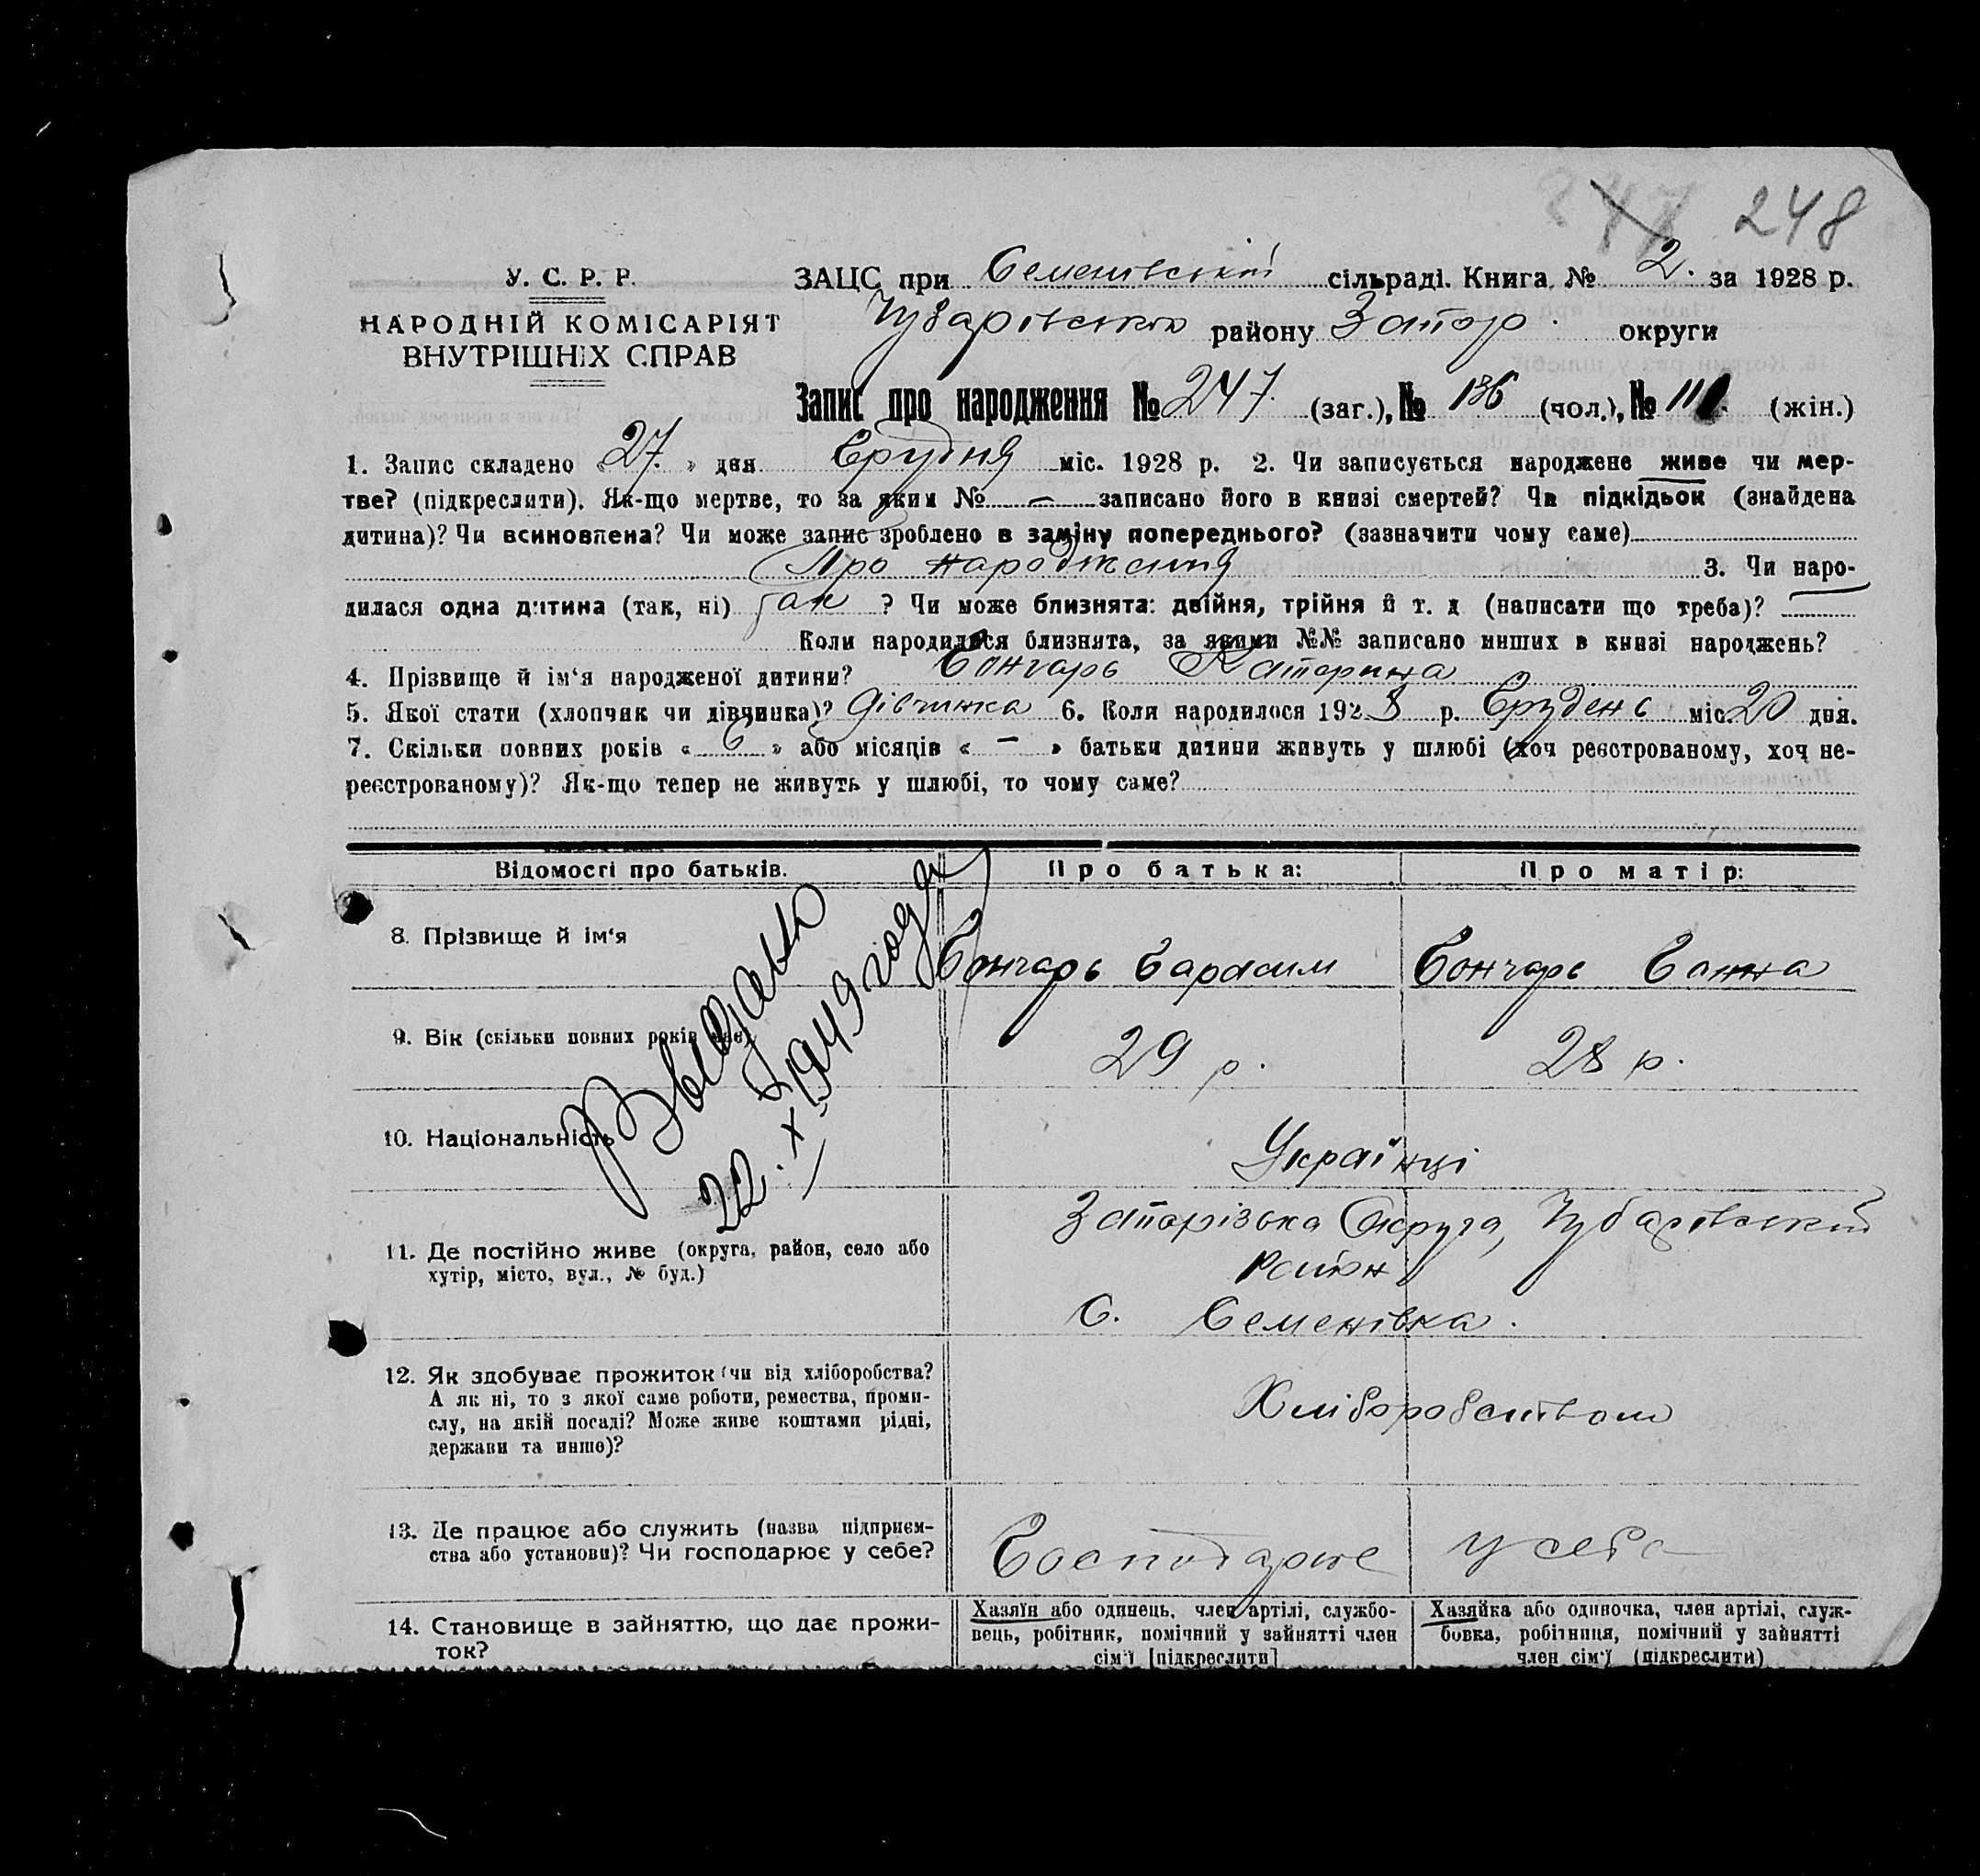 248
У. С. Р. Р.
НАРОДНІЙ КОМІСАРІЯТ
ВНУТРІШНІХ СПРАВ
ЗАЦС при Семенівській сільраді. Книга № 2. за 1928 р.
Чубарівського району Запор. округи
Запис про народження № 247. (заг.), № 136 (чол.), № 111. (жін.)
1. Запис складено „27." дня Грудня міс. 1928 р. 2. Чи записується народжене живе чи мер-
тве? (підкреслити). Як-що мертве, то за яким № — записано його в книзі смертей? Чи підкідьок (знайдена
дитина)? Чи всиновлена? Чи може запис зроблено в заміну попереднього? (зазначити чому саме)
Про народження 3. Чи наро-
дилася одна дитина (так, ні) так ? Чи може близнята: двійня, трійня й т. д (написати що треба)? —
Коли народилися близнята, за якими №№ записано инших в книзі народжень?
4. Прізвище й ім'я народженої дитини? Гончарь Катерина
5. Якої стати (хлопчик чи дівчинка)? дівчинка 6. Коли народилося 1928 р. Грудень міс. 20 дня.
7. Скільки повних років « 6 » або місяців « — » батьки дитини живуть у шлюбі (хоч реєстрованому, хоч не-
реєстрованому)? Як-що тепер не живуть у шлюбі, то чому саме?
Відомості про батьків. Про батька: Про матір:
8. Прізвище й ім'я Гончарь Гарасим Гончарь Ганна
9. Вік (скільки повних років має) 29 р. 28 р.
10. Національність Українці
11. Де постійно живе (округа, район, село або
хутір, місто, вул., № буд.)
Запорізька Округа, Чубарівський
район
С. Семенівка.
12. Як здобуває прожиток (чи від хліборобства?
А як ні, то з якої саме роботи, ремества, проми-
слу, на якій посаді? Може живе коштами рідні,
держави та инше)?
Хліборобством
13. Де працює або служить (назва підприєм-
ства або установи)? Чи господарює у себе?
Господарює у себе
14. Становище в зайняттю, що дає прожи-
ток?
Хазяїн або одинець, член артілі, службо-
вець, робітник, помічний у зайнятті член
сім'ї [підкреслити]
Хазяйка або одиночка, член артілі, служ-
бовка, робітниця, помічний у зайнятті
член сім'ї (підкреслити)
22. X. 1943 года